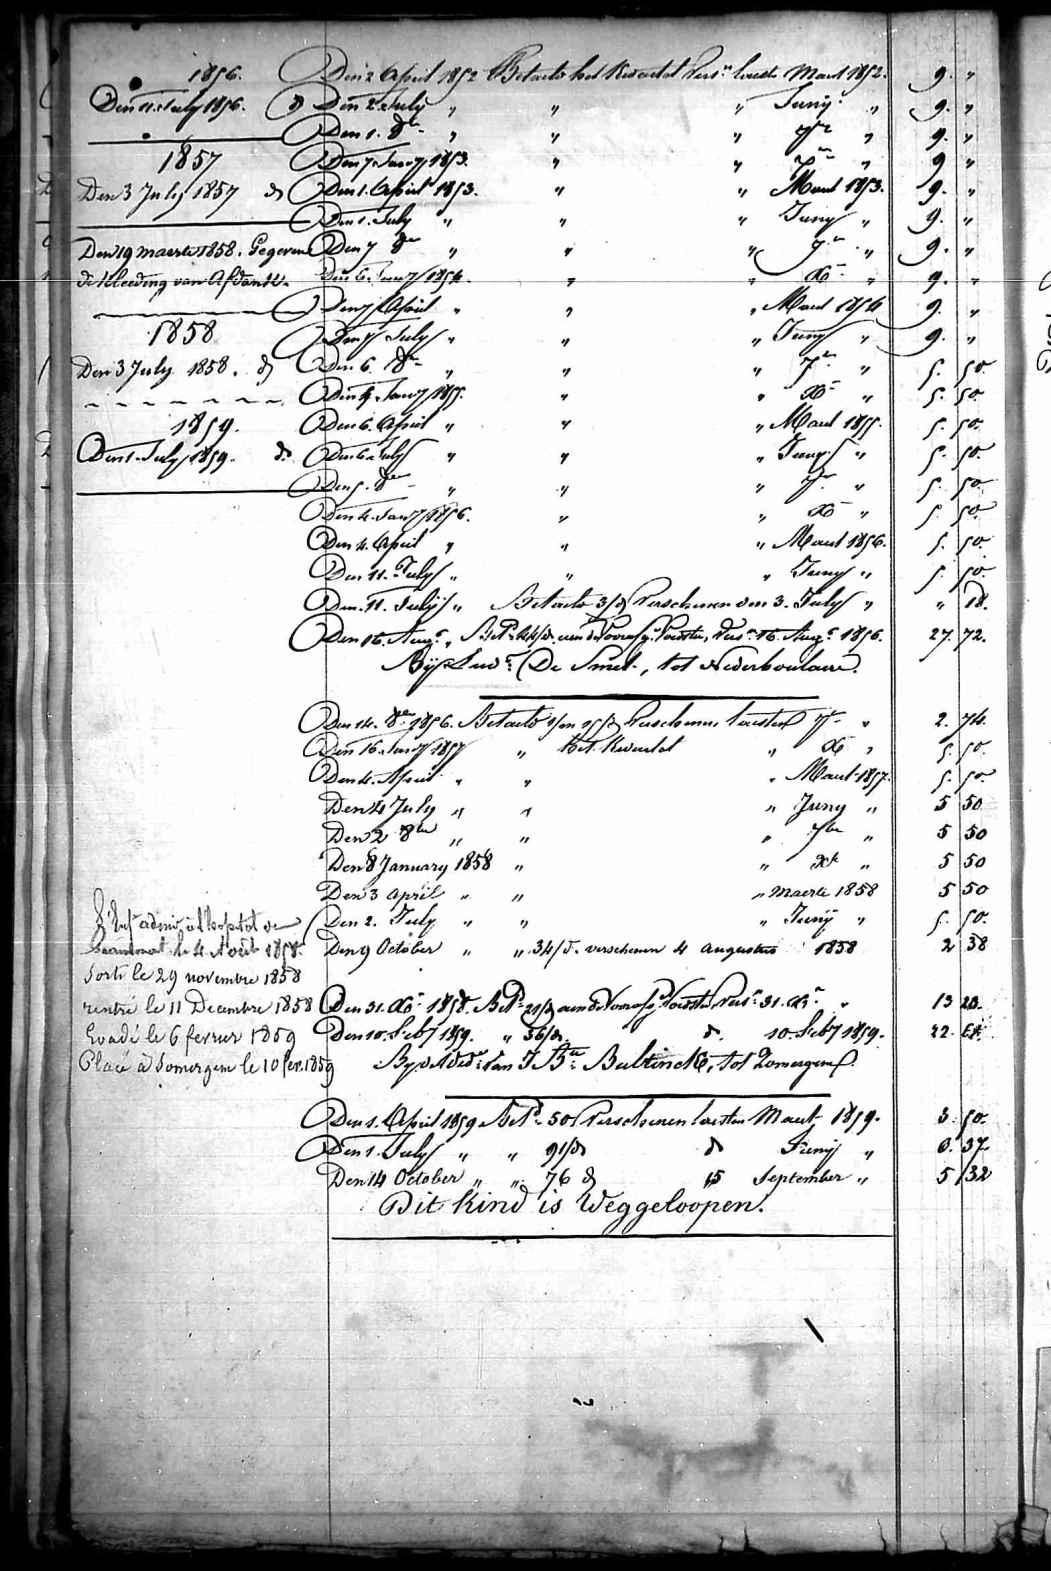 1856.
Den 11. July 1856. d°
1857
Den 3 July 1857 d°
Den 19 maerte 1858. Gegeven
de kleeding van Afdank.
1858
Den 3 July 1858. d°
1859.
Den 1. July 1859. d°
Den 2 April 1852 Betaeld het Kwartal Vers.n laeste Maart 1852. 9. "
Den 2 July " " " Juny " 9. "
Den 1. 8br " " " 7br " 9. "
Den 7 Janry 1853. " " " 9 "
Den 1. April 1853. " " Maart 1853. 9. "
Den 1. July " " " Juny " 9. "
Den 7 8br " " " 7br " 9. "
Den 6. Janry 1854. " " Xbr " 9. "
Den 7 April " " " Maart 1854 9. "
Den 7 July " " " Juny " 9. "
Den 6. 8br " " " 7br " 5. 50.
Den 4. Janry 1855. " " Xbr " 5. 50.
Den 6. April " " " Maart 1855. 5. 50.
Den 6. July " " " Juny " 5. 50.
Den 5. 8br " " " 7br " 5. 50
Den 4. Janry 1856. " " Xbr " 5. 50
Den 4. April " " " Maart 1856. 5. 50.
Den 11. July " " " Juny " 5. 50.
Den 11. July " Betaeld 3/d Verschenen den 3. July " " 18.
Den 16. Augt. " Vers. 16. Augt. 1856. 27. 72.
Bij Ludv. De Smet, tot Nederboulaere.
Den 14. 8br 1856. Betaeld Verschenen laesten 7br " 2. 74.
Den 16. Janry 1857 " het Kwartal " Xbr " 5. 50.
Den 4. April " " " Maart 1857. 5. 50
Den 4 July " " " Juny " 5 50
Den 2 8br " " " 7br " 5 50
Den 8 January 1858 " " Xbr " 5 50
Den 3 April " " " maerte 1858 5 50
Den 2. July " " " Juny " 5. 50.
Den 9 October " " 34/d. verschenen 4 Augustus 1858 2 38
admis à l'hopital de
le 4 Août 1858.
Sorti le 29 novembre 1858
rentré le 11 Decembre 1858
Evadé le 6 fevrier 1859
Placé à Somergem le 10 fev. 1859
Den 31. Xbr 1858. Bet. 21/d Vers. 31. Xbr " 13
Den 10. Feby 1859. " 56/d. d° 10. Feby 1859. 22.
By Van J. Bte Bultinck, tot Zomergem.
Den 1. April 1859 Bet. 50 Verschenen laesten Maart 1859. 3. 50.
Den 1. July " " 91/d d° Juny " 6. 37
Den 14 October " " 76 d° 15 September " 5 32
Dit kind is Weggeloopen.